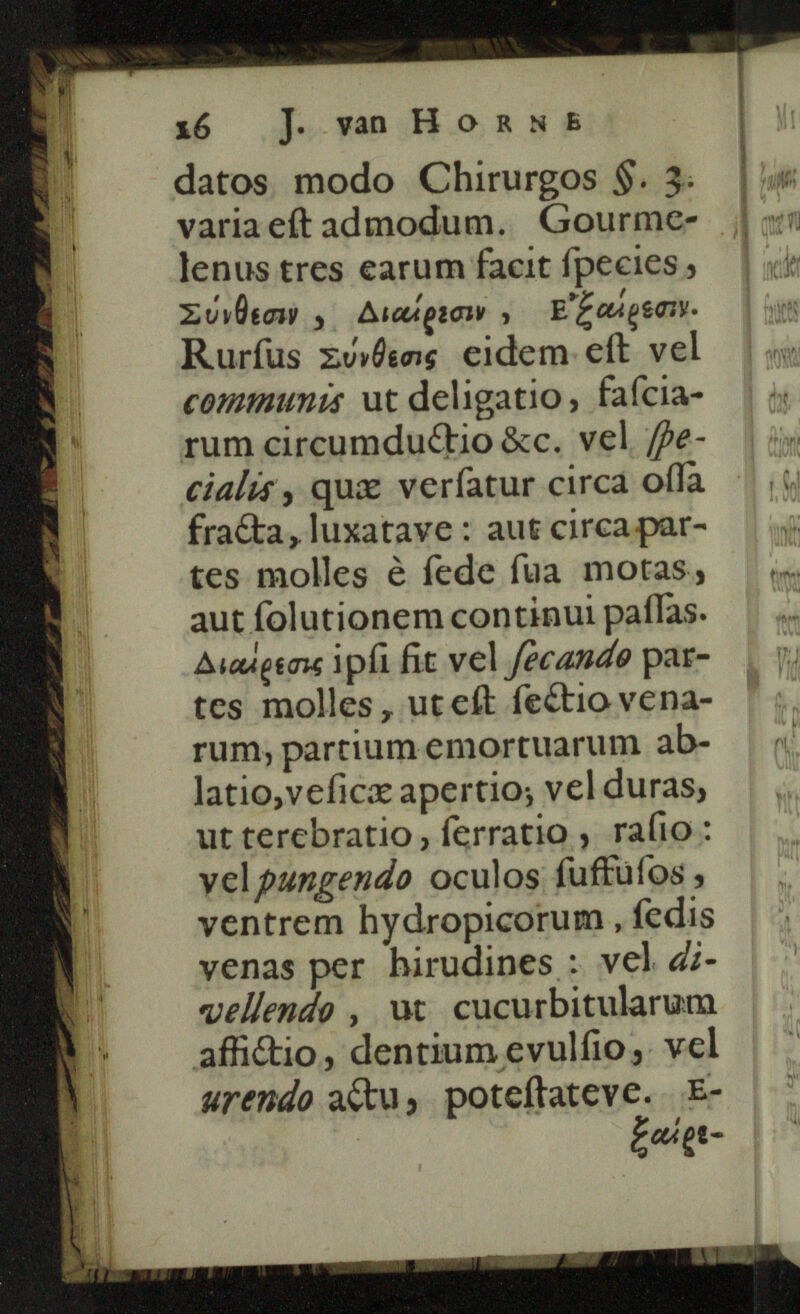 16 J. van HORNE
datos modo Chirurgos §. 3.
varia eſt admodum. Gourme-
lenus tres earum facit ſpecies,
Σύνθεσιν, Διαίρεσιν, Ἐξαίρεσιν.
Rurſus Σύνθεσις eidem eſt vel
communis ut deligatio, faſcia-
rum circumductio &c. vel ſpe-
cialis, quæ verſatur circa oſſa
fracta, luxatave: aut circa par-
tes molles è ſede ſua motas,
aut ſolutionem continui paſſas.
Διαίρεσις ipſi fit vel ſecando par-
tes molles, ut eſt ſectio vena-
rum, partium emortuarum ab-
latio, veſicæ apertio; vel duras,
ut terebratio, ſerratio, raſio:
vel pungendo oculos ſuffuſos,
ventrem hydropicorum, ſedis
venas per hirudines: vel di-
vellendo, ut cucurbitularum
affictio, dentium evulſio, vel
urendo actu, poteſtateve. Ἐ-
ξαίρε-